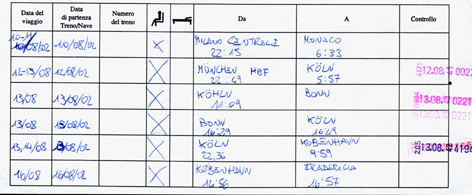 Data del viaggio Data di partenza Treno/Nave Numero del treno Da A Controllo
10-11/08/02 10/08/02 MILANO CENTRALE 22:15 MONACO 6:33
12-13/08 12/08/02 MÜNCHEN HBF 22:49 KÖLN 5:57 12.08. 022
13/08 13/08/02 KÖHLN 11:09 BONN 13.08. 022
13/08 13/08/02 BONN KÖLN
13,14/08 13/08/02 KÖLN 22,36 KØBENHAVN 9:59 13.08. 419
16/08/02 KØBENHAVN FREDERICIA 16'57